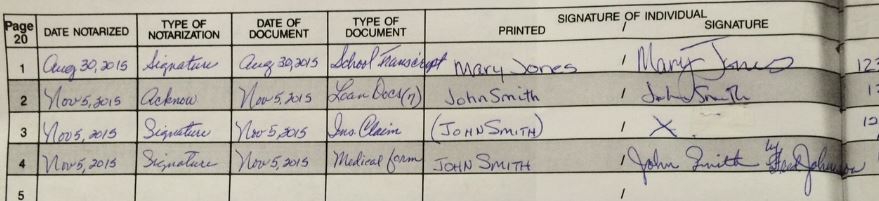 Page 20 DATE NOTARIZED TYPE OF NOTARIZATION DATE OF DOCUMENT TYPE OF DOCUMENT PRINTED SIGNATURE OF INDIVIDUAL / SIGNATURE
1 Aug 30, 2015 Signature Aug 30, 2015 School Transcript Mary Jones / Mary Jones 12
2 Nov 5, 2015 Acknow Nov 5, 2015 Loan Docs (7) John Smith / John Smith 1
3 Nov 5, 2015 Signature Nov 5, 2015 Ins. Claim (JOHN SMITH) / X. 12
4 Nov 5, 2015 Signature Nov 5, 2015 Medical form JOHN SMITH / John Smith by Johnson
5 /